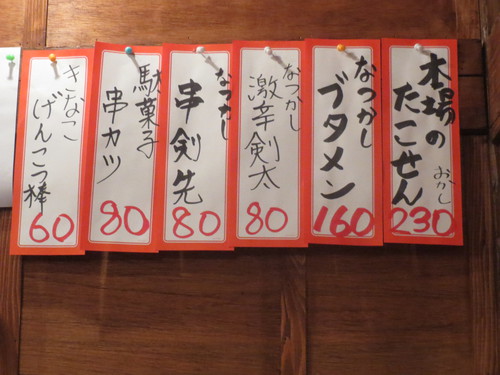 木場の
たこせん
おかし
230
なつかし
ブタメン
160
なつかし
激辛剣太
80
なつかし
串剣先
80
駄菓子
串カツ
80
きなこ
げんこつ棒
60